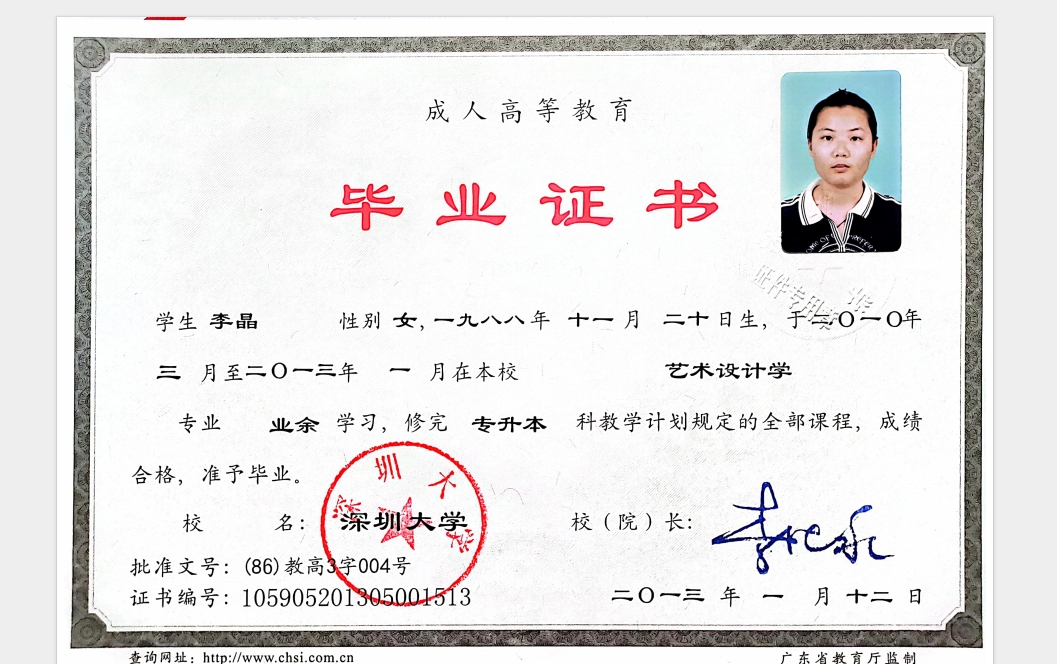 成人高等教育
毕业证书
证件专用章
学生 李晶 性别 女，一九八八年 十一 月 二十日生，于二〇一〇年
三 月至二〇一三年 一 月在本校 艺术设计学
专业 业余 学习，修完 专升本 科教学计划规定的全部课程，成绩
合格，准予毕业。
深圳大学
校 名：深圳大学 校（院）长：
批准文号：(86)教高3字004号
证书编号：105905201305001513 二〇一三 年 一 月 十二 日
查询网址：http://www.chsi.com.cn 广东省教育厅监制